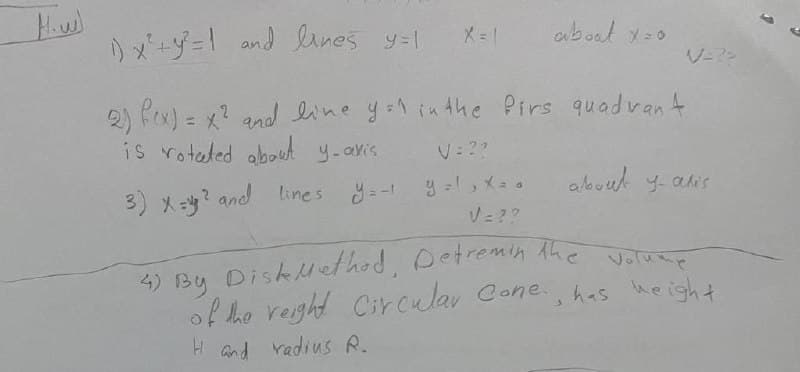 H.w)
1) x²+y²=1 and lines y=1 x=1 about x=0
V=??
2) f(x) = x² and line y=1 in the firs quadrant
is rotated about y-axis V=??
3) x=y² and lines y=-1 y=1, x=0 about y-axis
V=??
4) By Disk Method, Detremin the volume
of the reight Circular Cone, has height
H and radius R.